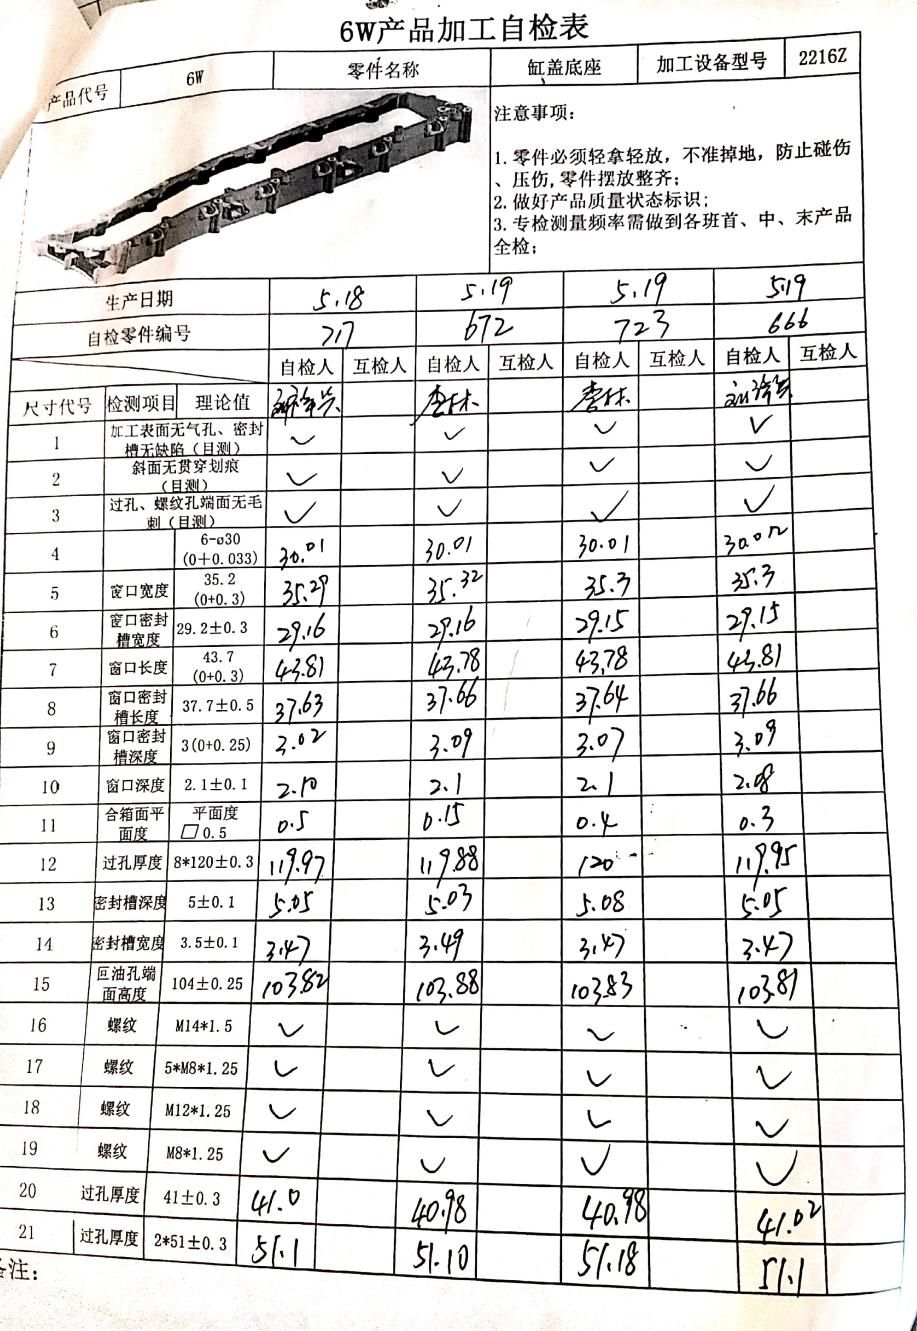 6W产品加工自检表
产品代号 6W 零件名称 缸盖底座 加工设备型号 2216Z
注意事项：
1. 零件必须轻拿轻放，不准掉地，防止碰伤
、压伤,零件摆放整齐；
2. 做好产品质量状态标识；
3. 专检测量频率需做到各班首、中、末产品
全检；
生产日期 5.18 5.19 5.19 5.19
自检零件编号 717 672 723 666
自检人 互检人 自检人 互检人 自检人 互检人 自检人 互检人
尺寸代号 检测项目 理论值 李林 李林
1 加工表面无气孔、密封 ✓ ✓ ✓ ✓
槽无缺陷（目测）
2 斜面无贯穿划痕 ✓ ✓ ✓ ✓
（目测）
3 过孔、螺纹孔端面无毛 ✓ ✓ ✓ ✓
刺（目测）
4 6-ø30 30.01 30.01 30.01 30.012
(0+0.033)
5 窗口宽度 35.2 35.29 35.32 35.3 35.3
(0+0.3)
6 窗口密封 29.2±0.3 29.16 29.16 29.15 29.15
槽宽度
7 窗口长度 43.7 43.81 43.78 43.78 43.81
(0+0.3)
8 窗口密封 37.7±0.5 37.63 37.66 37.64 37.66
槽长度
9 窗口密封 3(0+0.25) 3.02 3.09 3.07 3.09
槽深度
10 窗口深度 2.1±0.1 2.10 2.1 2.1 2.08
11 合箱面平 平面度 0.5 0.15 0.4 0.3
面度 0.5
12 过孔厚度 8*120±0.3 119.97 119.88 120 119.95
13 密封槽深度 5±0.1 5.05 5.03 5.08 5.05
14 密封槽宽度 3.5±0.1 3.47 3.49 3.47 3.47
15 回油孔端 104±0.25 103.82 103.88 103.83 103.81
面高度
16 螺纹 M14*1.5 ✓ ✓ ✓ ✓
17 螺纹 5*M8*1.25 ✓ ✓ ✓ ✓
18 螺纹 M12*1.25 ✓ ✓ ✓ ✓
19 螺纹 M8*1.25 ✓ ✓ ✓ ✓
20 过孔厚度 41±0.3 41.0 40.98 40.98 41.02
21 过孔厚度 2*51±0.3 51.1 51.10 51.18 51.1
备注：